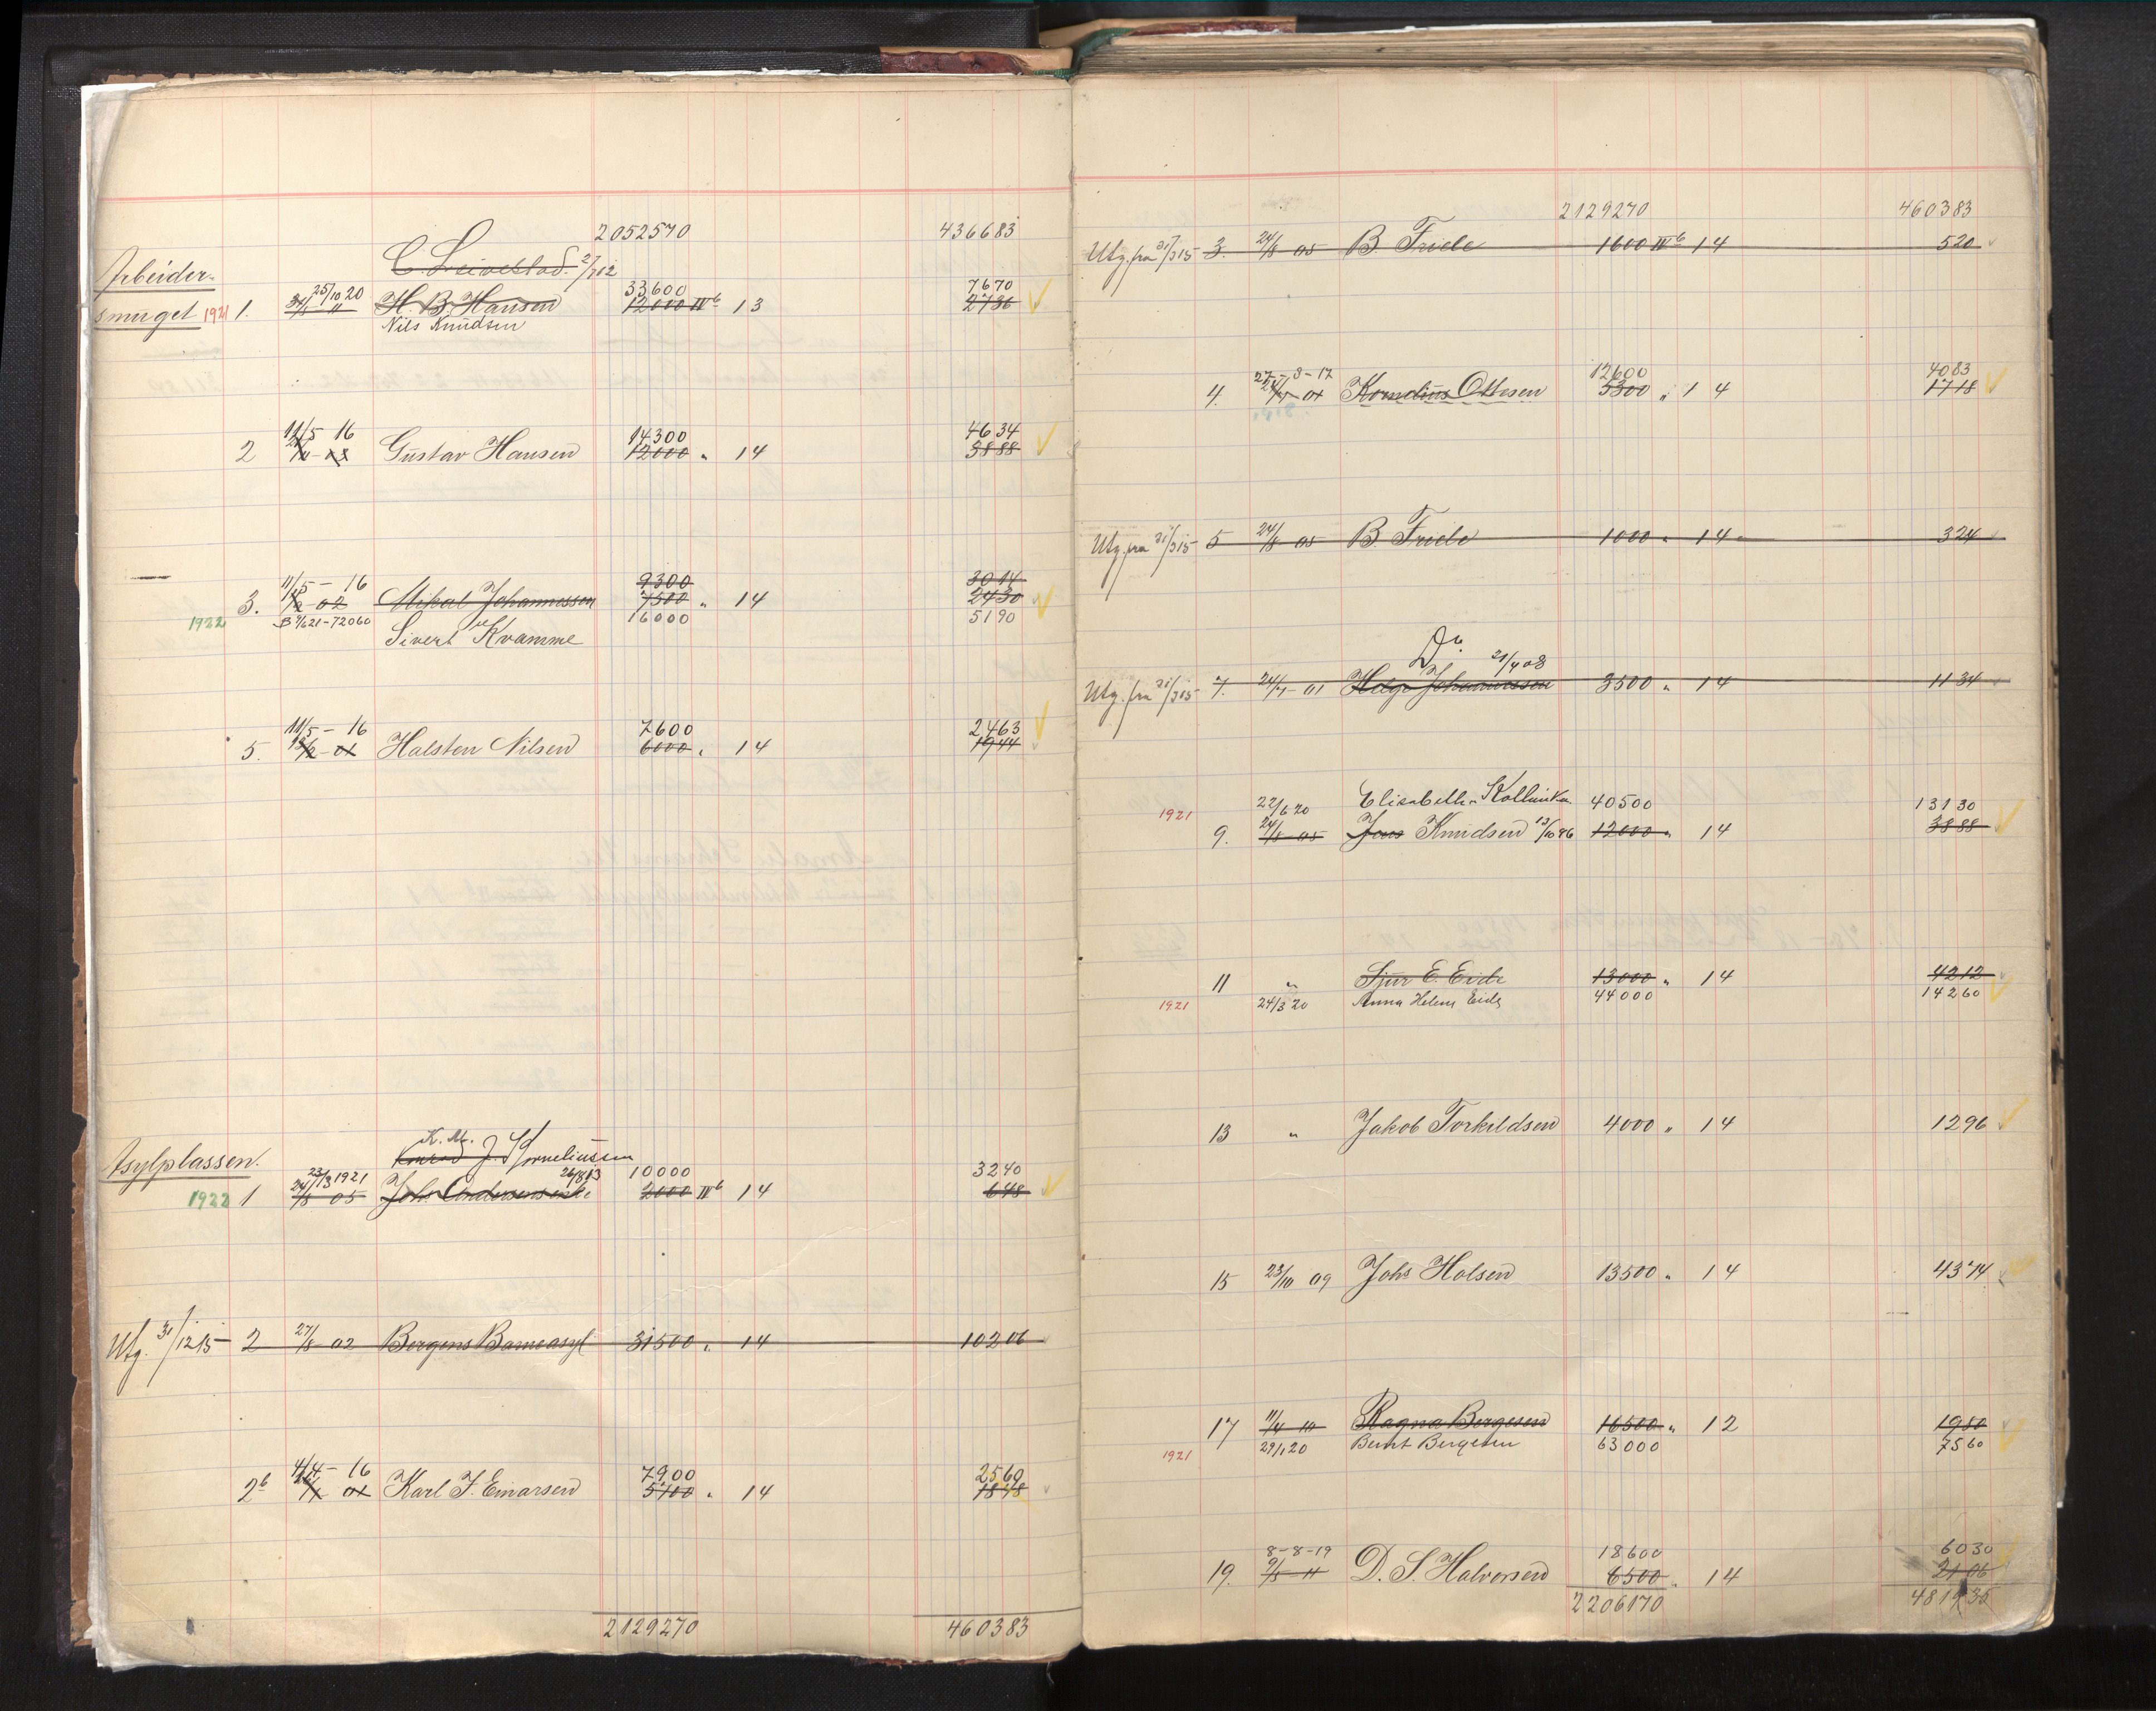 2052570 436683
Arbeider-
C. Leivestad 2/7 12
25/10 20 33600 7670
smuget 1921 1. H. B. Hansen 12000 IVb 13 2736
Nils Knudsen
11/5 - 16 14300 4634
2 Gustav Hansen 12000 " 14 3888
11/5 - 16 9300 3014
3. 02 Mikal Johannessen 7500 " 14 2430
1922 B 9/6 21 - 72060 16000 5190
Sivert Kvamme
11/5 - 16 7600 2463
5. 13/2 - 01 Halsten Nilsen 6000 " 14 1944
K. M.
Asylplassen. Konrad J. Korneliussen
23/3 1921 26/8 13 10000 3240
1922 1 24/8 05 Joh. Andersens enke 2000 IVb 14 648
Utg. 31/12 15 2 27/8 - 02 Bergens Barneasyl 31500 " 14 10206
4/4 - 16 7900 2560
2b 01 Karl J. Einarsen 5700 " 14 1848
2129270 460383
2129270 460383
Utg. fra 31/3 15 3. 24/8 05 B. Friele 1600 IVb 14 520
27 - 3 - 17 12600 4083
4. 01 Kornelius Ottesen 5300 " 14 1718
Utg. fra 31/3 15 5 24/8 05 B. Friele 1000 " 14 324
Do.
21/4 08
Utg. fra 31/3 15 7. 24/7 - 01 Helge Johannessen 3500 " 14 1134
1921 22/6 20 Elisabeth 40500 13130
9. 24/8 - 05 Jens Knudsen 12000 " 14 3888
11 " Sjur E. Eide 13000 " 14 4212
1921 24/3 20 Anna Helene Eide 44000 14260
13 " Jakob Torkildsen 4000 " 14 1296
15 23/10 09 Johs Holsen 13500 " 14 4374
17 11/4 10 Ragna Bergesen 16500 " 12 1980
1921 29/1 20 Bernt Bergesen 63000 7560
8 - 8 - 19 18600 6030
19. 9/5 - 11 D. S. Halvorsen 6500 " 14 2106
2206170 481935